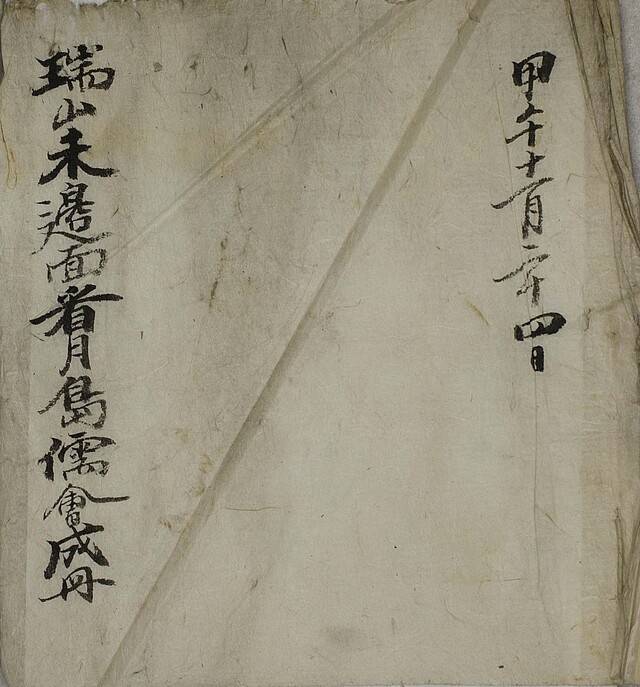 甲午十一月二十四日
瑞山禾邊面看月島儒會成冊